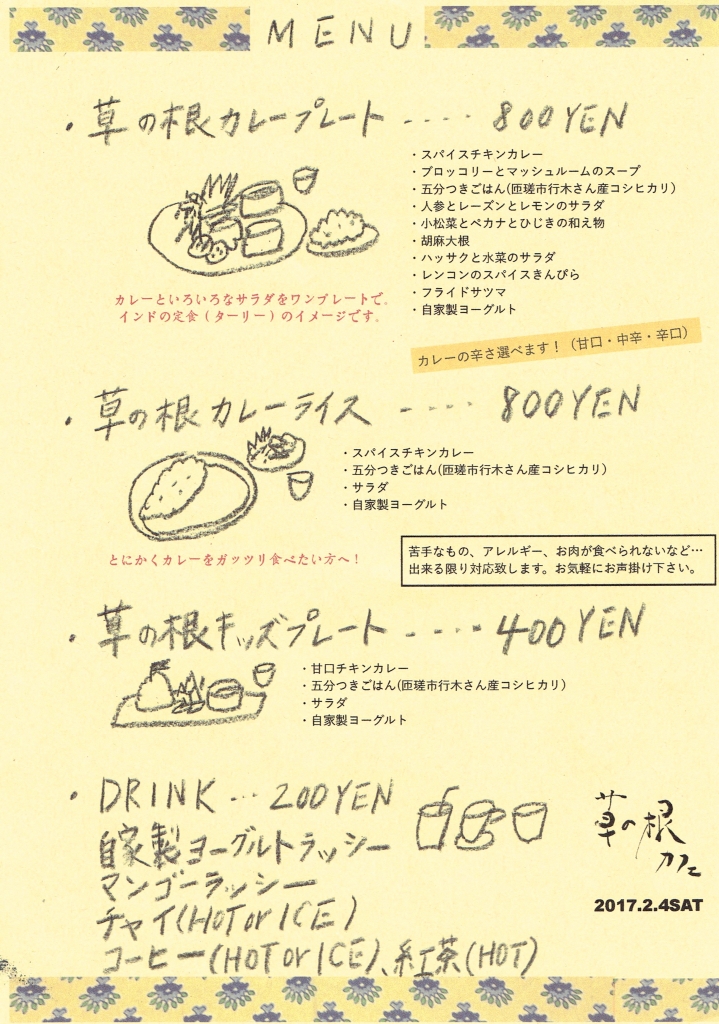 MENU
・草の根カレープレート ‥‥ 800YEN
・スパイスチキンカレー
・ブロッコリーとマッシュルームのスープ
・五分つきごはん(匝瑳市行木さん産コシヒカリ)
・人参とレーズンとレモンのサラダ
・小松菜とペカナとひじきの和え物
・胡麻大根
・ハッサクと水菜のサラダ
・レンコンのスパイスきんぴら
・フライドサツマ
・自家製ヨーグルト
カレーといろいろなサラダをワンプレートで。
インドの定食(ターリー)のイメージです。
カレーの辛さ選べます！（甘口・中辛・辛口）
・草の根カレーライス ‥‥ 800YEN
・スパイスチキンカレー
・五分つきごはん(匝瑳市行木さん産コシヒカリ)
・サラダ
・自家製ヨーグルト
とにかくカレーをガッツリ食べたい方へ！
苦手なもの、アレルギー、お肉が食べられないなど…
出来る限り対応致します。お気軽にお声掛け下さい。
・草の根キッズプレート ‥‥ 400YEN
・甘口チキンカレー
・五分つきごはん(匝瑳市行木さん産コシヒカリ)
・サラダ
・自家製ヨーグルト
・DRINK … 200YEN
自家製ヨーグルトラッシー
マンゴーラッシー
チャイ(HOT or ICE)
コーヒー(HOT or ICE)、紅茶(HOT)
草の根
カフェ
2017.2.4SAT